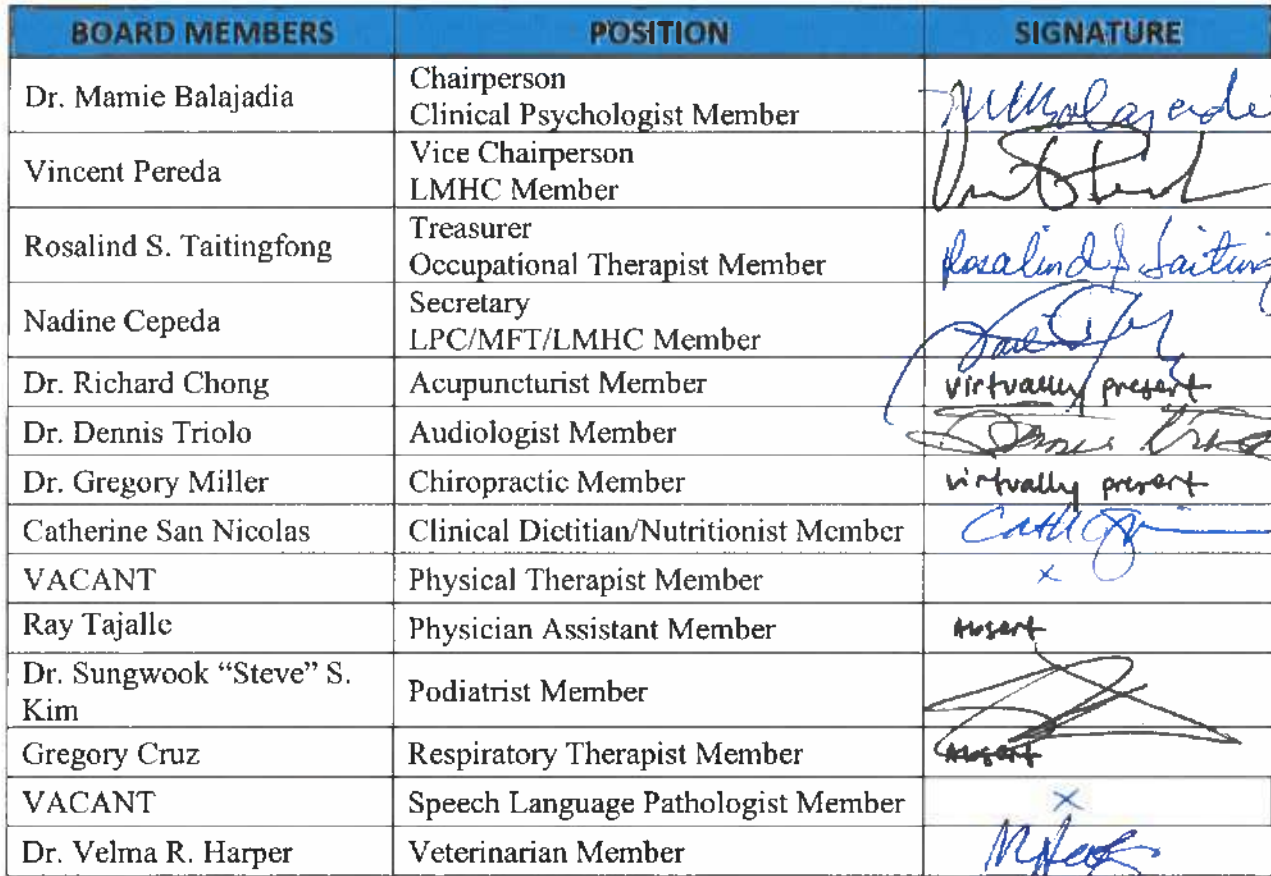 BOARD MEMBERS POSITION SIGNATURE
Dr. Mamie Balajadia Chairperson
Clinical Psychologist Member
Vincent Pereda Vice Chairperson
LMHC Member
Rosalind S. Taitingfong Treasurer
Occupational Therapist Member Rosalind S Taiting
Nadine Cepeda Secretary
LPC/MFT/LMHC Member
Dr. Richard Chong Acupuncturist Member virtually present
Dr. Dennis Triolo Audiologist Member
Dr. Gregory Miller Chiropractic Member virtually present
Catherine San Nicolas Clinical Dietitian/Nutritionist Member
VACANT Physical Therapist Member x
Ray Tajalle Physician Assistant Member Absent
Dr. Sungwook “Steve” S.
Kim Podiatrist Member
Gregory Cruz Respiratory Therapist Member Absent
VACANT Speech Language Pathologist Member x
Dr. Velma R. Harper Veterinarian Member